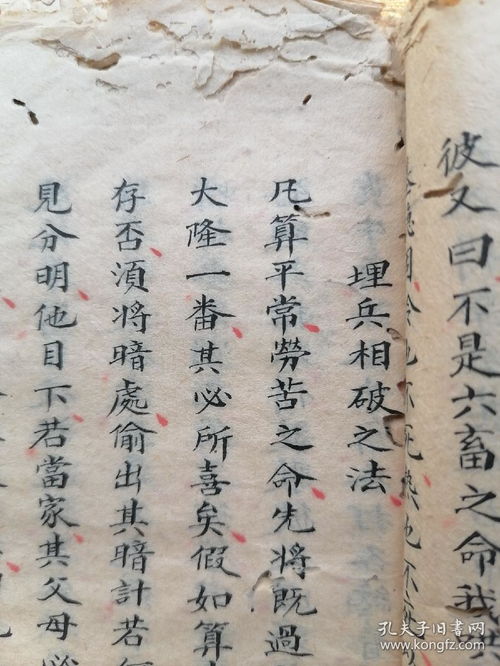 彼又曰不是六畜之命我
埋兵相破之法
凡算平常勞苦之命先將既過
大隆一番其必所喜矣假如算
存否須將暗處偷出其暗計若
見分明他目下若當家其父母必
孔夫子旧书网
www.kongfz.com